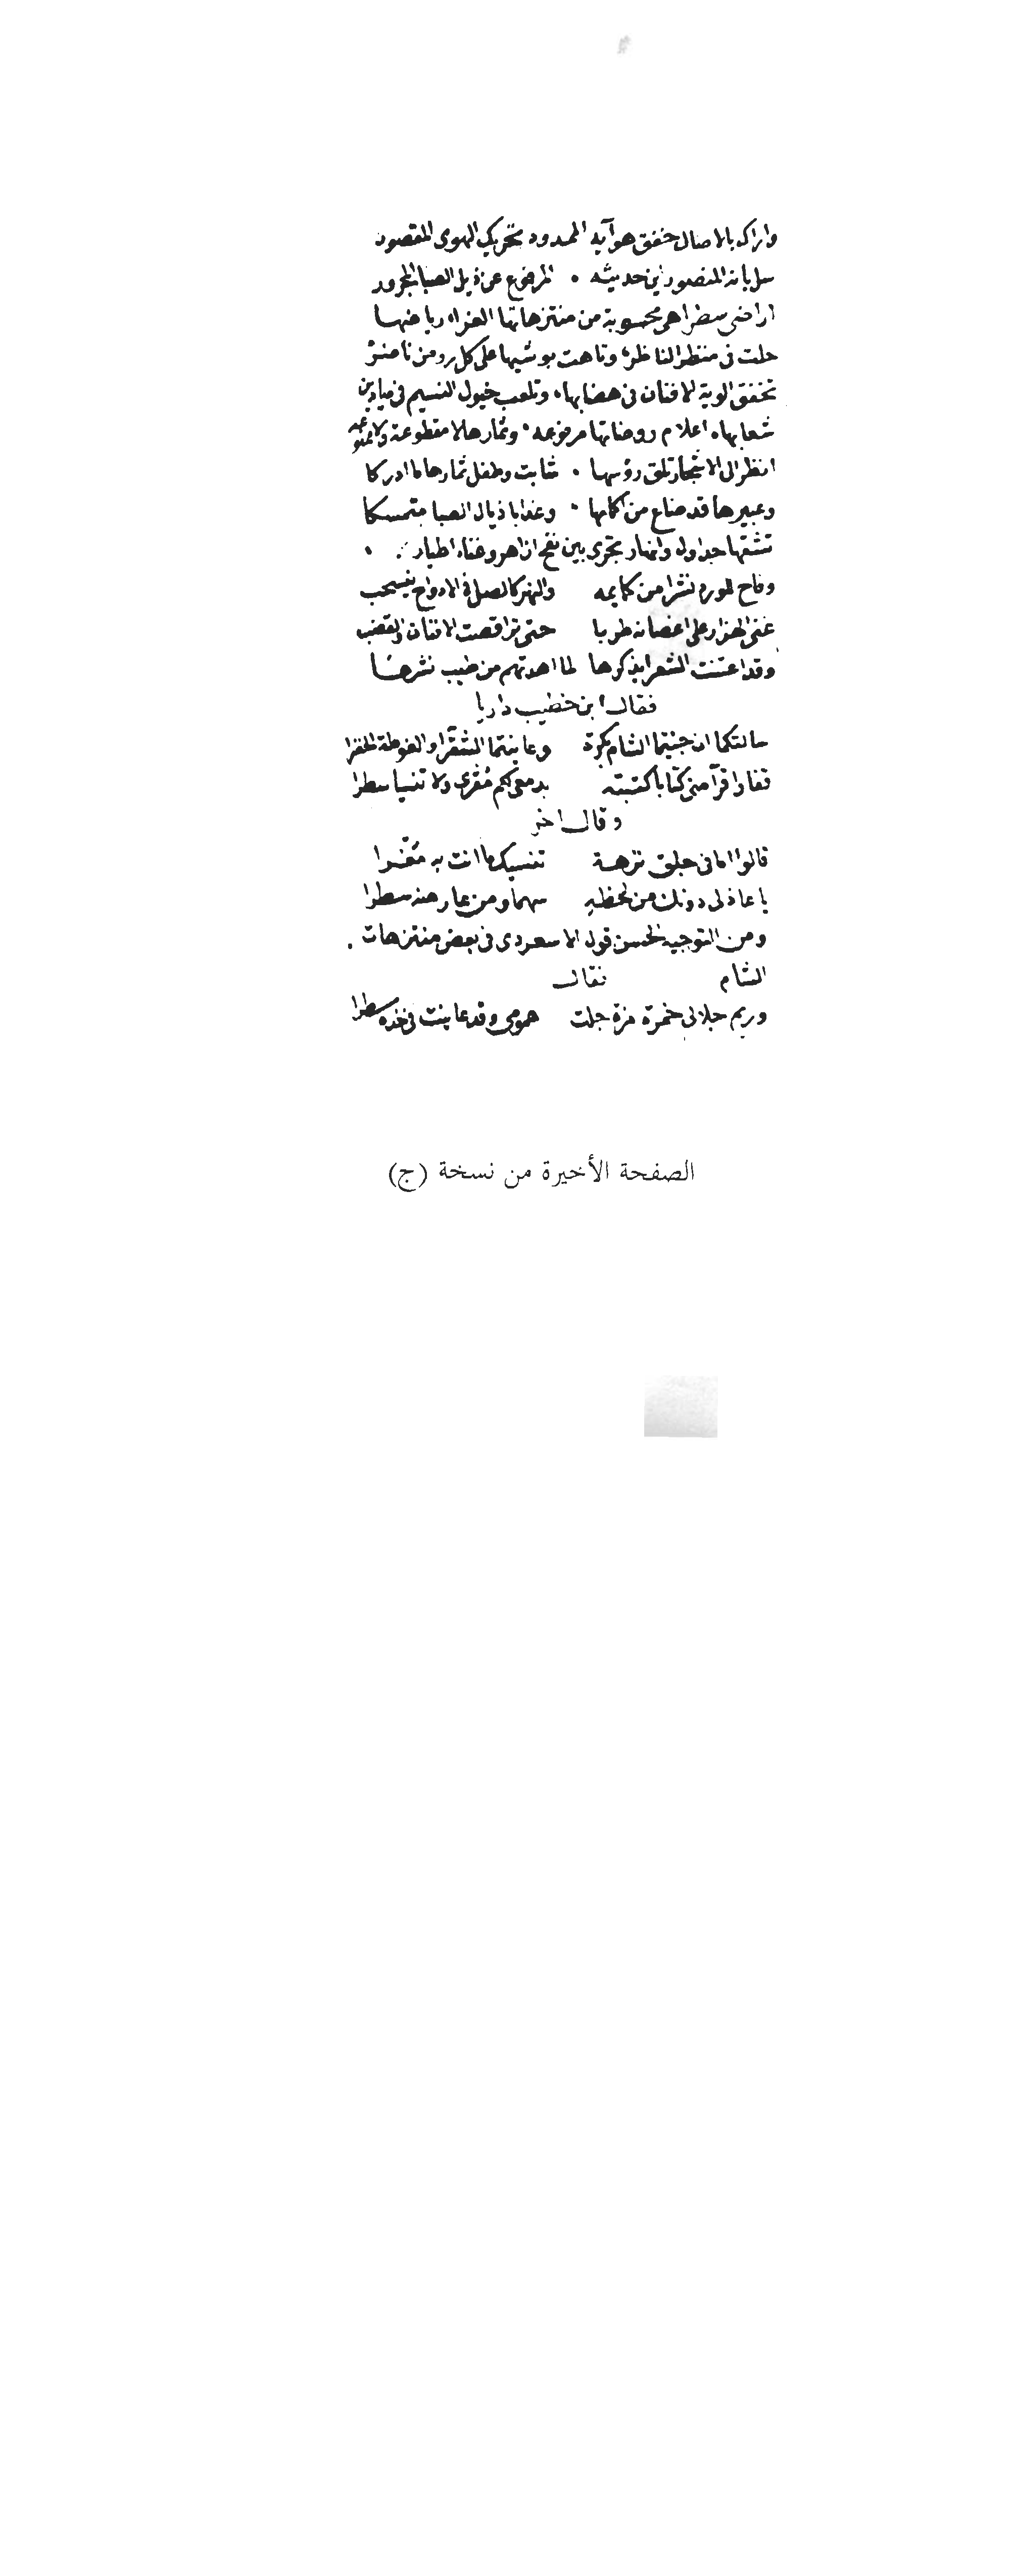 واراك بالاصال خفق هوآيه الممدود تحريك الهوى المقصور
سل بانة المنصور اين حديثه . المرفوع عن ذيل الصبا المجرور
اراضى سطرا هى محسوبة من منتزهاتها الغراء رياضها
حلت فى منظر الناظر، وتاهت بوشيها على كل روض ناضر
تخفق الوية الافنان فى هضابها، وتلعب خيول النسيم فى ميادين
شعابها، اعلام روضاتها مرفوعه، وثمارها لا مقطوعة ولا ممنوعه
انظر الى الاشجار تلق رؤسها . شابت وطفل ثمارها ما ادركا
وعبيرها قد ضاع من اكمامها . وغدا باذيال الصبا متمسكا
تشقها جداول وانهار تجرى بين نفح ازاهر وغناء اطيار .
وفاح الورد نشرا من كمايمه والنهر كالصل فى الادواح ينسحب
غنى الهزار على اغصانه طربا حتى تراقصت الافنان والقضب
وقد اعتنت الشعرا بذكرها لما اهدتهم من طيب نشرها
فقال ابن خطيب داريا
سالتكما ان جئتما الشام بكرة وعاينتما الشقرا والغوطة الخضرا
قفا واقرآ منى كتابا كتبته بدمعى لكم مقرى ولا تنسيا سطرا
وقال اخر
قالوا اما فى جلق نزهة تنسيك ما انت به مغرا
يا عاذلى دونك من لحظه سهما ومن عارضه سطرا
ومن التوجيه الحسن قول الاسعردى فى بعض منتزهات .
الشام فقال
وريم جلالى خمرة مزة جلت همومى وقد عاينت فى خده سطرا
الصفحة الأخيرة من نسخة (ج)